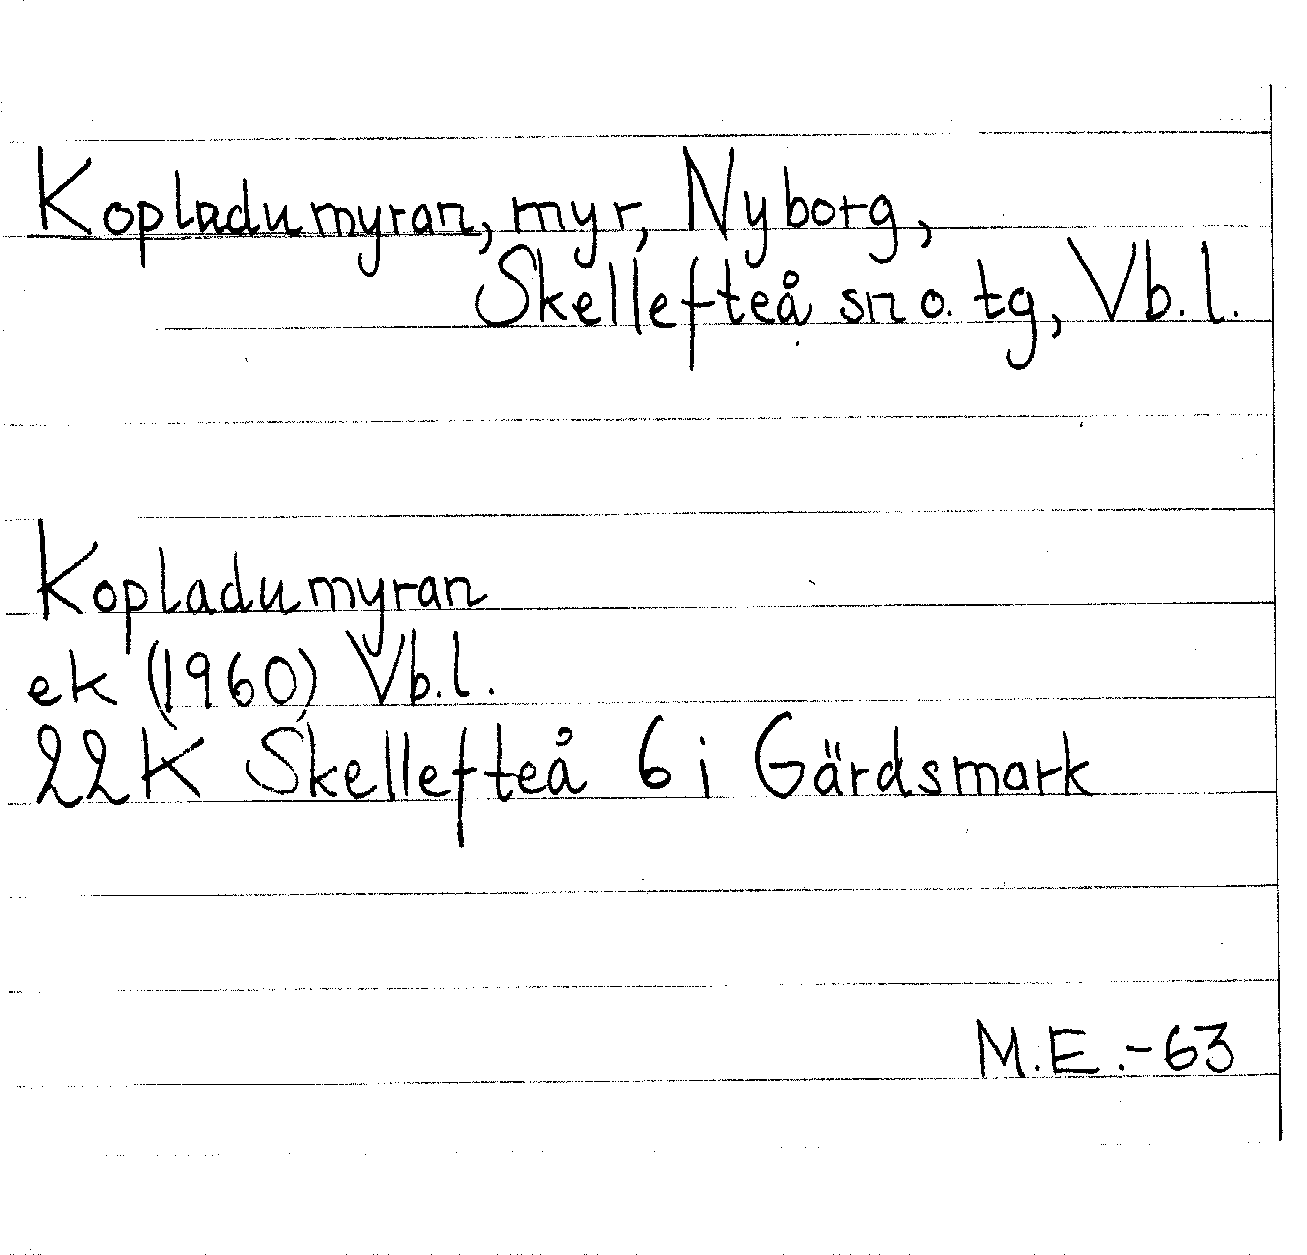 Kopladumyran, myr, Nyborg,
Skellefteå sn o. tg, Vb. l.
Kopladumyran
ek (1960) Vb.l.
22K Skellefteå 6 i Gärdsmark
M.E.-63